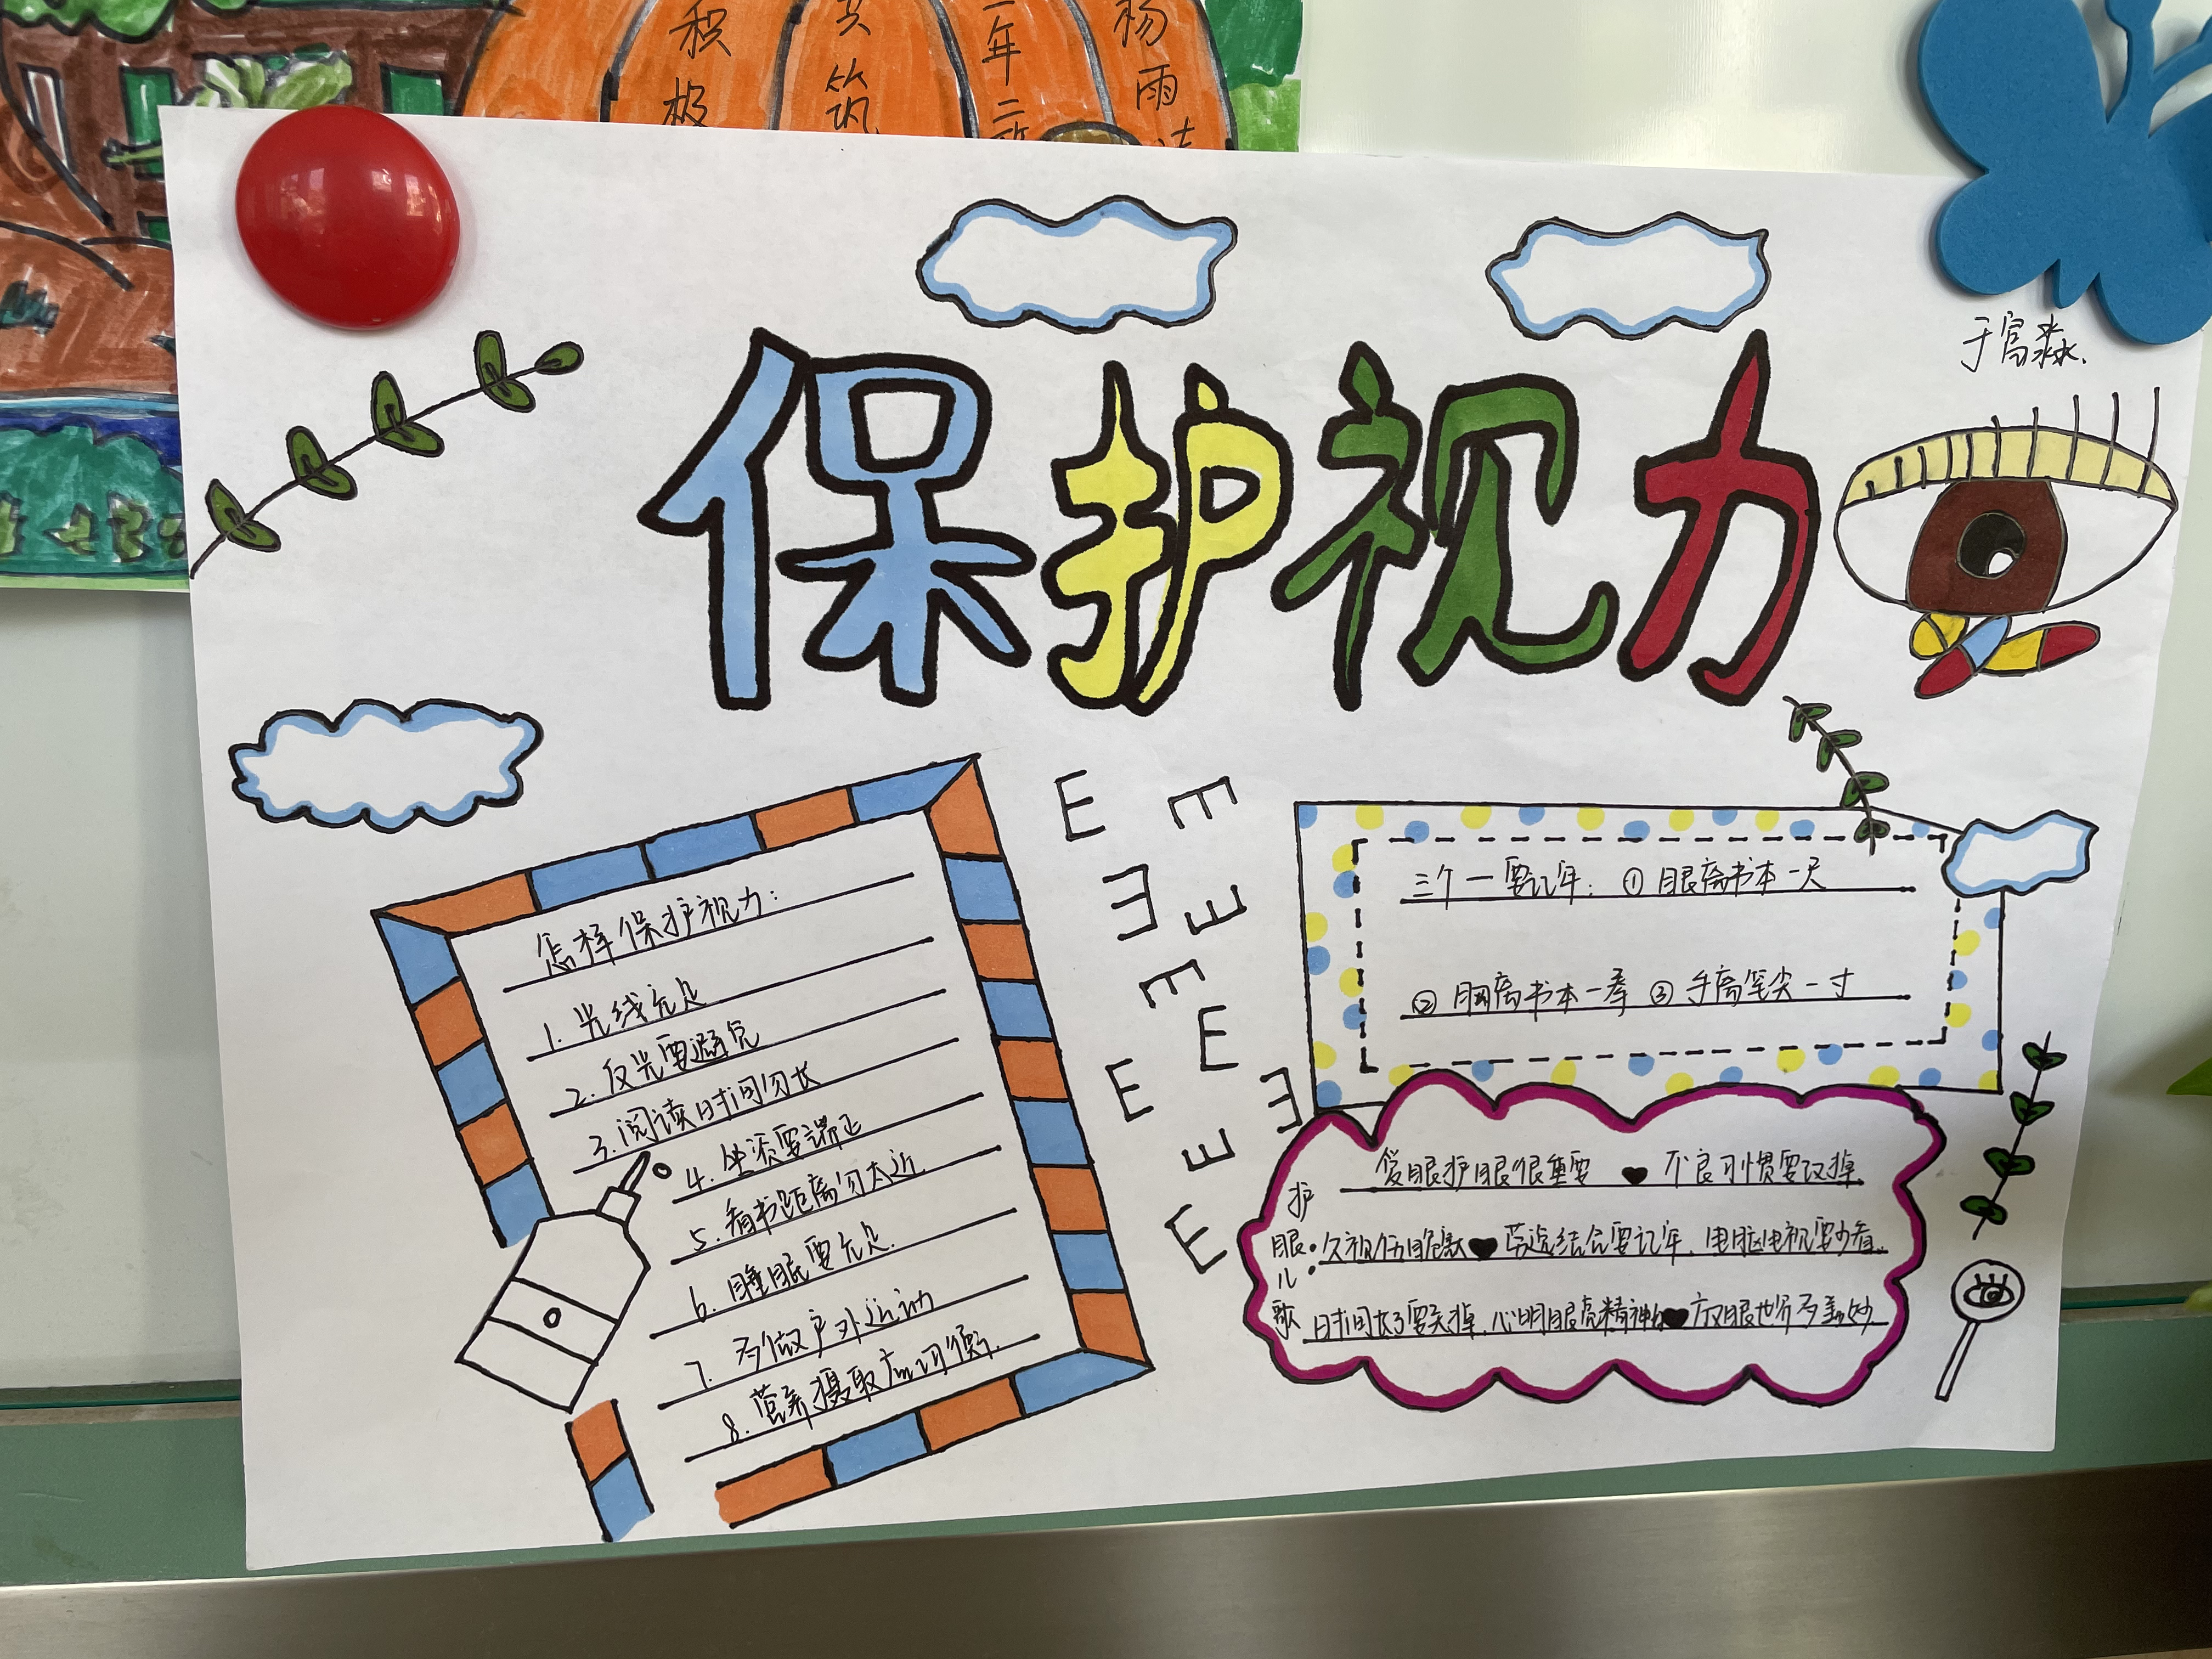 积极
共筑
二年二
杨雨
于富淼.
保护视力
怎样保护视力:
1. 光线充足
2. 反光要避免
3. 阅读时间勿长
4. 坐姿要端正
5. 看书距离勿太近.
6. 睡眠要充足.
7. 多做户外运动
8. 营养摄取应均衡.
E E
E E
E E
E E
E E
E
三个一要记牢: ① 眼离书本一尺
② 胸离书本一拳 ③ 手离笔尖一寸
护眼儿歌:
爱眼护眼很重要 不良习惯要改掉.
久视伤眼 劳逸结合要记牢. 电脑电视要少看.
时间长了要关掉. 心明眼亮精神 放眼世界多美妙.